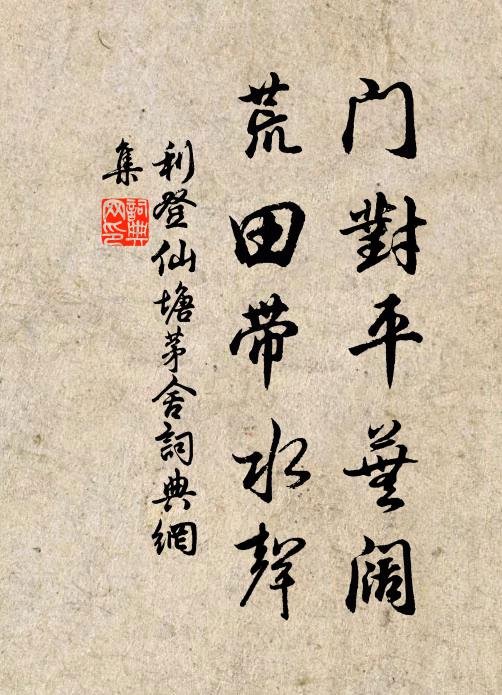 門對平蕪闊
荒田帶水聲
利登仙塘茅舍詞典網
集
詞典
网印